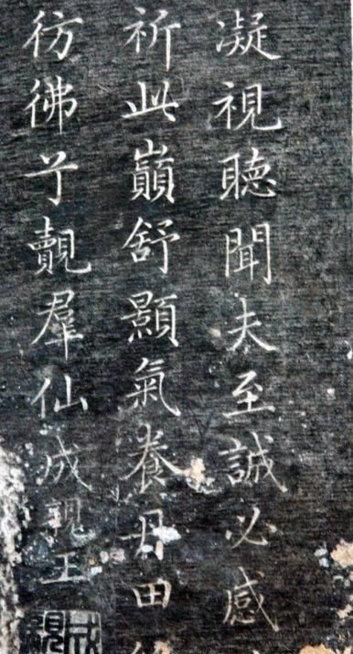 凝視聽聞夫至誠必感
祈此巔舒顥氣養丹田
彷彿兮覿羣仙成親王
成親